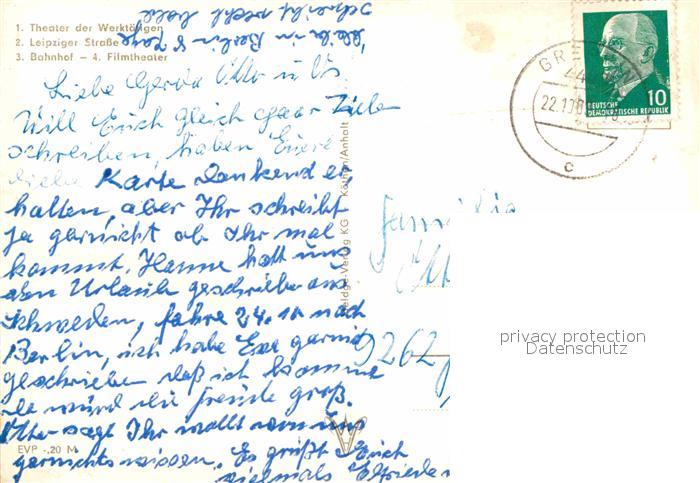 1. Theater der Werktätigen
2. Leipziger Straße
3. Bahnhof – 4. Filmtheater
Liebe Gerda Otto u.
Will Euch gleich paar Zeilen
schreiben, haben Euere
liebe Karte dankend er
halten, aber Ihr schreibt
ja garnicht ob Ihr mal
kommt. Hanne hatt uns
den Urlaub geschrieben aus
Schweden, fahre 24.10 nach
Berlin, ich habe garnicht
geschrieben daß ich komme
da wird die Freude groß.
Otto sagt Ihr wollt von uns
garnichts wissen. Es grüßt Euch
vielmals Elfriede
in Berlin 8 Tage
schreibt recht bald
EVP -,20 M
Verlag KG Köthen/Anhalt
22.10
DEUTSCHE
DEMOKRATISCHE REPUBLIK
10
c
Familie
9262
privacy protection
Datenschutz